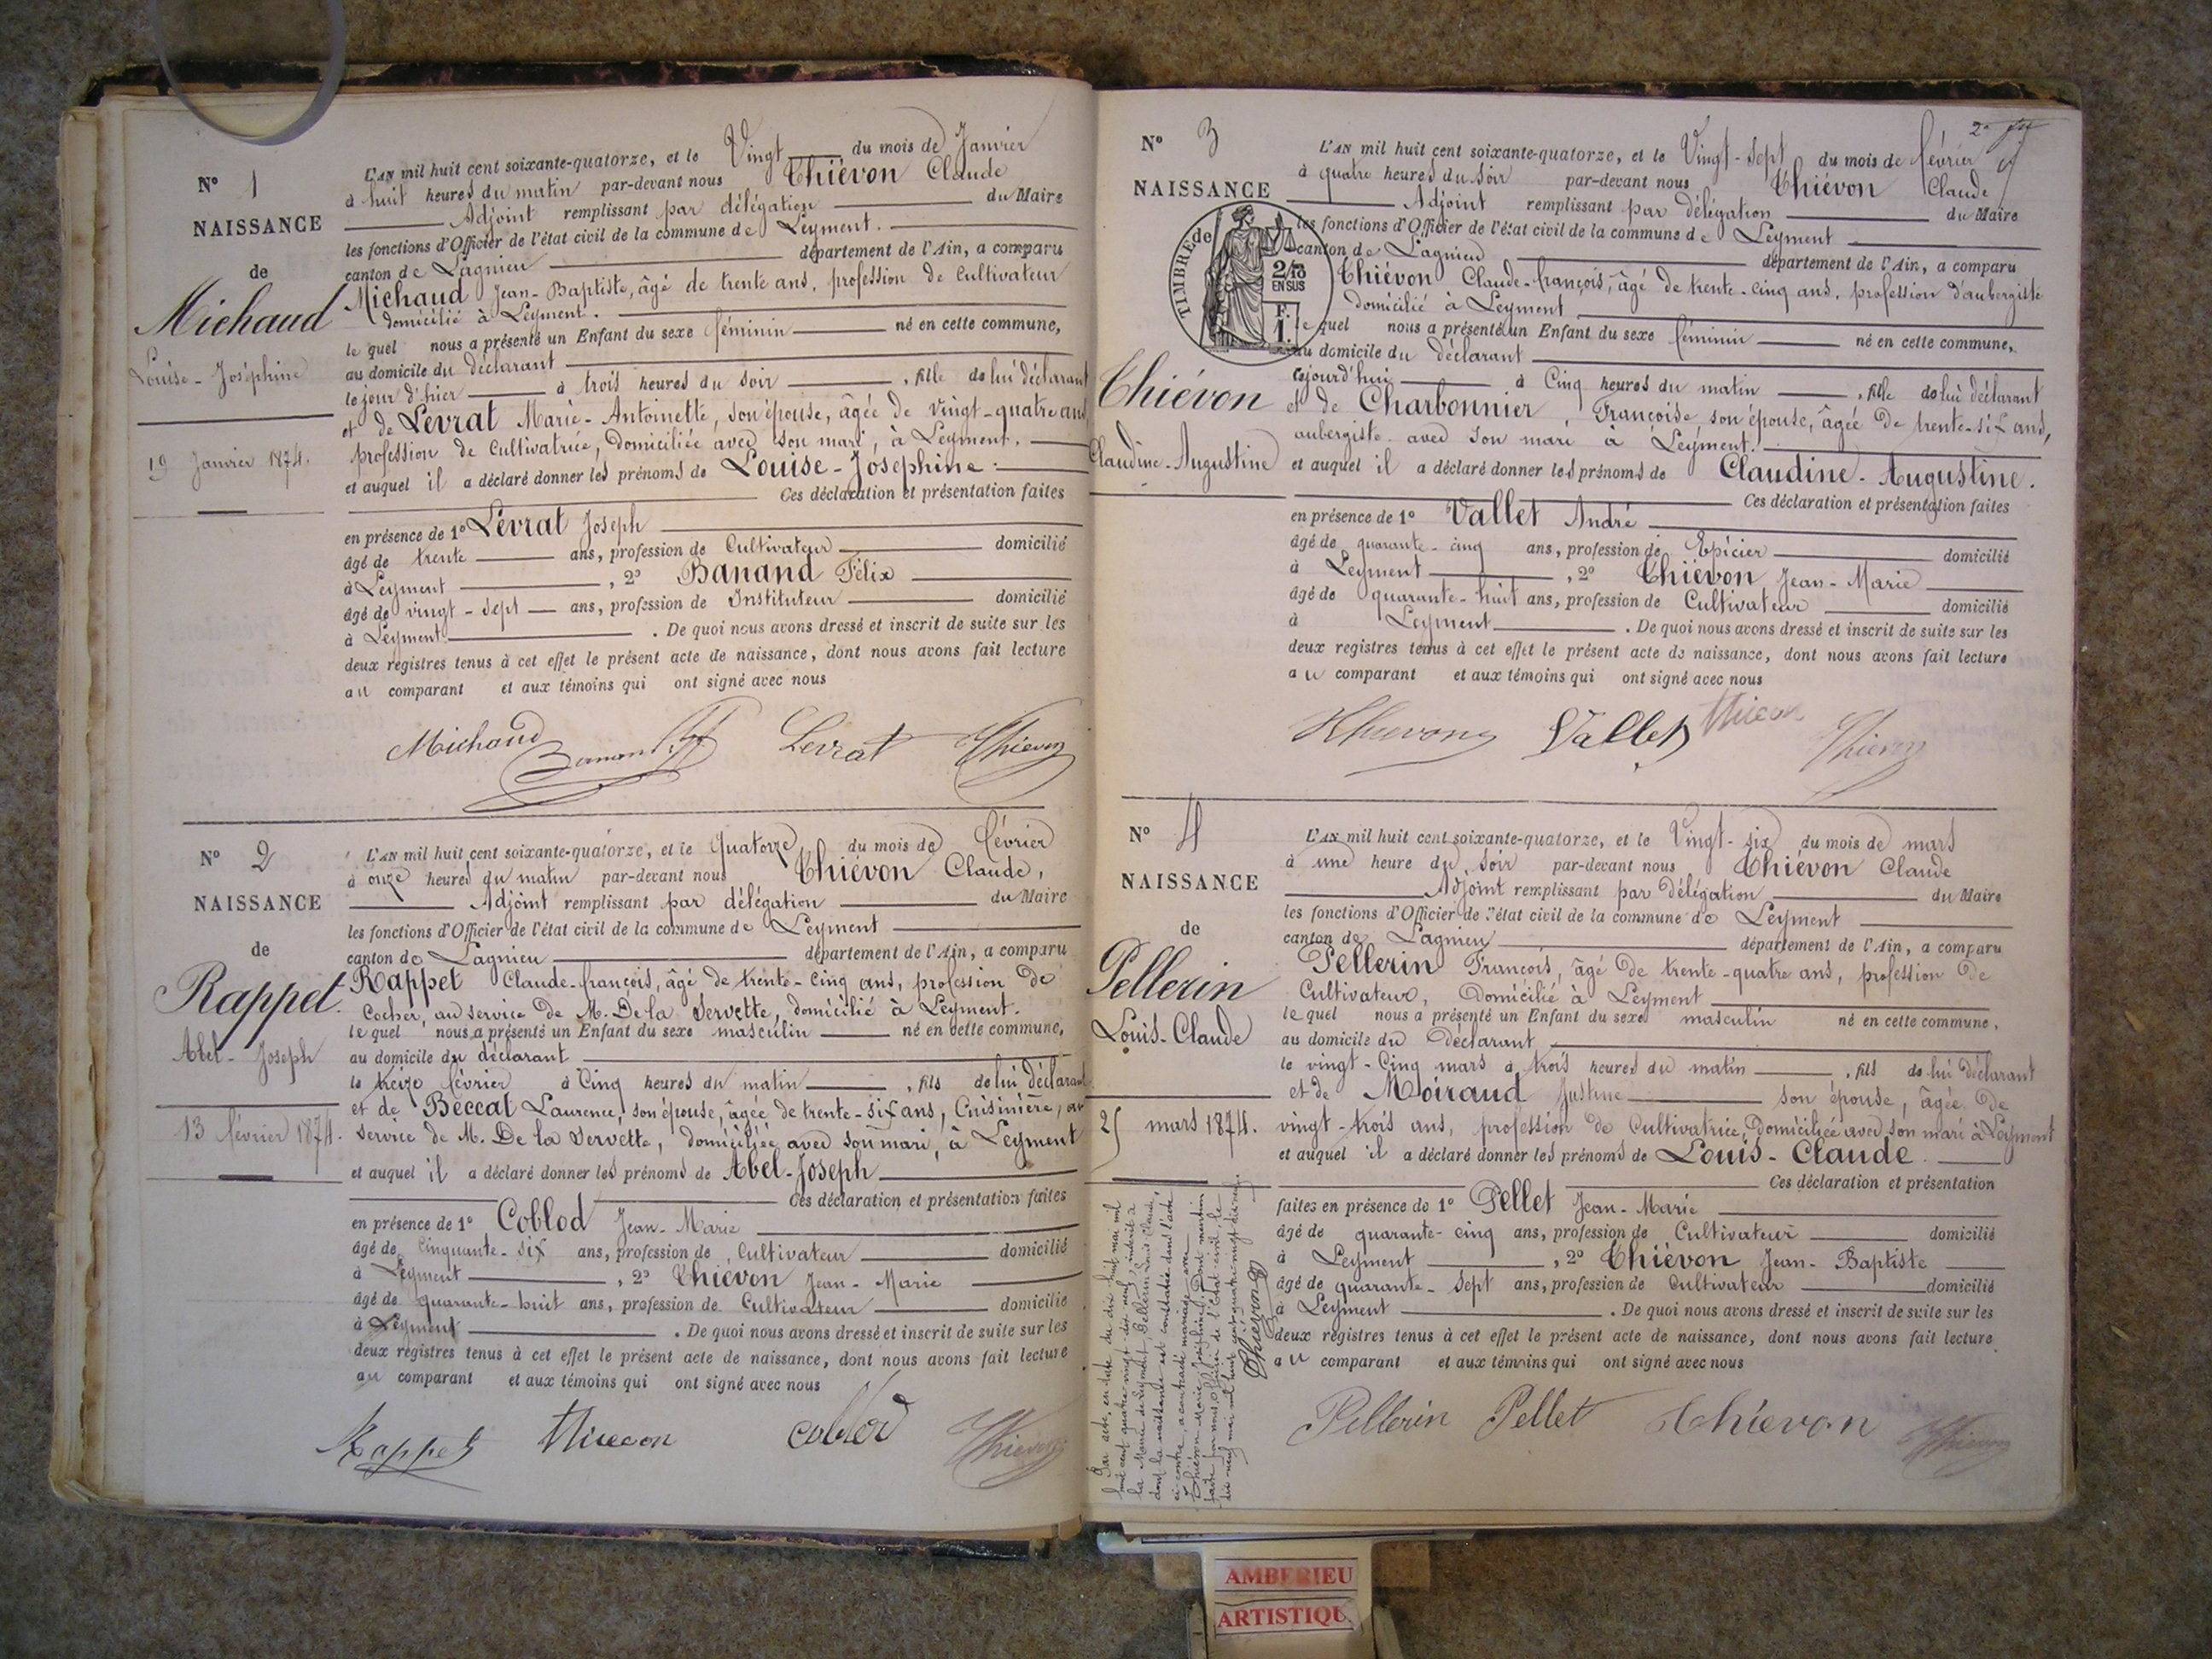 N° 1
NAISSANCE
de
Michaud
Louise-Joséphine
19 Janvier 1874.
L'AN mil huit cent soixante-quatorze, et le Vingt du mois de Janvier
à huit heures du matin par-devant nous Thiévon Claude
Adjoint remplissant par délégation du Maire
les fonctions d'Officier de l'état civil de la commune de Leyment.
canton de Lagnieu département de l'Ain, a comparu
Michaud Jean-Baptiste, âgé de trente ans, profession de Cultivateur
domicilié à Leyment.
le quel nous a présenté un Enfant du sexe féminin né en cette commune,
au domicile du déclarant
le jour d'hier à trois heures du soir , fille de lui déclarant
et de Levrat Marie-Antoinette, son épouse, âgée de vingt-quatre ans,
profession de Cultivatrice, domiciliée avec son mari, à Leyment.
et auquel il a déclaré donner les prénoms de Louise-Joséphine.
Ces déclaration et présentation faites
en présence de 1° Levrat Joseph
âgé de trente ans, profession de Cultivateur domicilié
à Leyment , 2° Banand Félix
âgé de vingt-sept ans, profession de Instituteur domicilié
à Leyment . De quoi nous avons dressé et inscrit de suite sur les
deux registres tenus à cet effet le présent acte de naissance, dont nous avons fait lecture
au comparant et aux témoins qui ont signé avec nous
Michaud Banand Levrat Thievon
N° 2
NAISSANCE
de
Rappet.
Abel-Joseph
13 février 1874.
L'AN mil huit cent soixante-quatorze, et le Quatorze du mois de février
à onze heures du matin par-devant nous Thiévon Claude,
Adjoint remplissant par délégation du Maire
les fonctions d'Officier de l'état civil de la commune de Leyment
canton de Lagnieu département de l'Ain, a comparu
Rappet Claude-françois, âgé de trente-cinq ans, profession de
Cocher, au service de M. De la Servette, domicilié à Leyment.
le quel nous a présenté un Enfant du sexe masculin né en cette commune,
au domicile du déclarant
le treize février à Cinq heures du matin , fils de lui déclarant
et de Beccat Laurence, son épouse, âgée de trente-six ans, Cuisinière, au
service de M. De la Servette, domiciliée avec son mari, à Leyment
et auquel il a déclaré donner les prénoms de Abel-Joseph
Ces déclaration et présentation faites
en présence de 1° Coblod Jean-Marie
âgé de Cinquante-six ans, profession de Cultivateur domicilié
à Leyment , 2° Thiévon Jean-Marie
âgé de quarante-huit ans, profession de Cultivateur domicilié
à Leyment . De quoi nous avons dressé et inscrit de suite sur les
deux registres tenus à cet effet le présent acte de naissance, dont nous avons fait lecture
au comparant et aux témoins qui ont signé avec nous
Rappet Thievon Coblod Thievon
N° 3
NAISSANCE
de
TIMBRE
2/10
EN SUS
F.
1.
Thiévon
Claudine-Augustine
L'AN mil huit cent soixante-quatorze, et le Vingt-Sept du mois de février
à quatre heures du soir par-devant nous Thiévon Claude
Adjoint remplissant par délégation du Maire
les fonctions d'Officier de l'état civil de la commune de Leyment
canton de Lagnieu département de l'Ain, a comparu
Thiévon Claude-françois, âgé de trente-cinq ans, profession d'aubergiste
domicilié à Leyment
le quel nous a présenté un Enfant du sexe féminin né en cette commune,
au domicile du déclarant
cejourd'hui à Cinq heures du matin , fille de lui déclarant
et de Charbonnier Françoise, son épouse, âgée de trente-six ans,
aubergiste avec son mari à Leyment.
et auquel il a déclaré donner les prénoms de Claudine-Augustine.
Ces déclaration et présentation faites
en présence de 1° Vallet André
âgé de quarante-cinq ans, profession de Epicier domicilié
à Leyment , 2° Thiévon Jean-Marie
âgé de quarante-huit ans, profession de Cultivateur domicilié
à Leyment . De quoi nous avons dressé et inscrit de suite sur les
deux registres tenus à cet effet le présent acte de naissance, dont nous avons fait lecture
au comparant et aux témoins qui ont signé avec nous
Thievon Vallet Thievon Thievon
N° 4
NAISSANCE
de
Pellerin
Louis-Claude
25 mars 1874.
L'AN mil huit cent soixante-quatorze, et le Vingt-six du mois de mars
à une heure du soir par-devant nous Thiévon Claude
Adjoint remplissant par délégation du Maire
les fonctions d'Officier de l'état civil de la commune de Leyment
canton de Lagnieu département de l'Ain, a comparu
Pellerin François, âgé de trente-quatre ans, profession de
Cultivateur, Domicilié à Leyment
le quel nous a présenté un Enfant du sexe masculin né en cette commune,
au domicile du Déclarant
le vingt-cinq mars à trois heures du matin , fils de lui déclarant
et de Moiraud Justine son épouse, âgée de
vingt-trois ans, profession de Cultivatrice, Domiciliée avec son mari à Leyment
et auquel il a déclaré donner les prénoms de Louis-Claude.
Ces déclaration et présentation
faites en présence de 1° Pellet Jean-Marie
âgé de quarante-cinq ans, profession de Cultivateur domicilié
à Leyment , 2° Thiévon Jean-Baptiste
âgé de quarante-sept ans, profession de Cultivateur domicilié
à Leyment . De quoi nous avons dressé et inscrit de suite sur les
deux registres tenus à cet effet le présent acte de naissance, dont nous avons fait lecture
au comparant et aux témoins qui ont signé avec nous
Pellerin Pellet Thiévon Thievon
Par acte, en date du dix huit mai mil
huit cent quatre-vingt-dix-neuf, inscrit à
la Mairie de Leyment, Pellerin Louis Claude,
dont la naissance est constatée dans l'acte
ci-contre, a contracté mariage avec
Thiévon Marie Joséphine. Dont mention
faite par nous, Officier de l'Etat-civil, le
dix-neuf mai mil huit cent quatre-vingt-dix-neuf
Thievon
AMBERIEU
ARTISTIQU